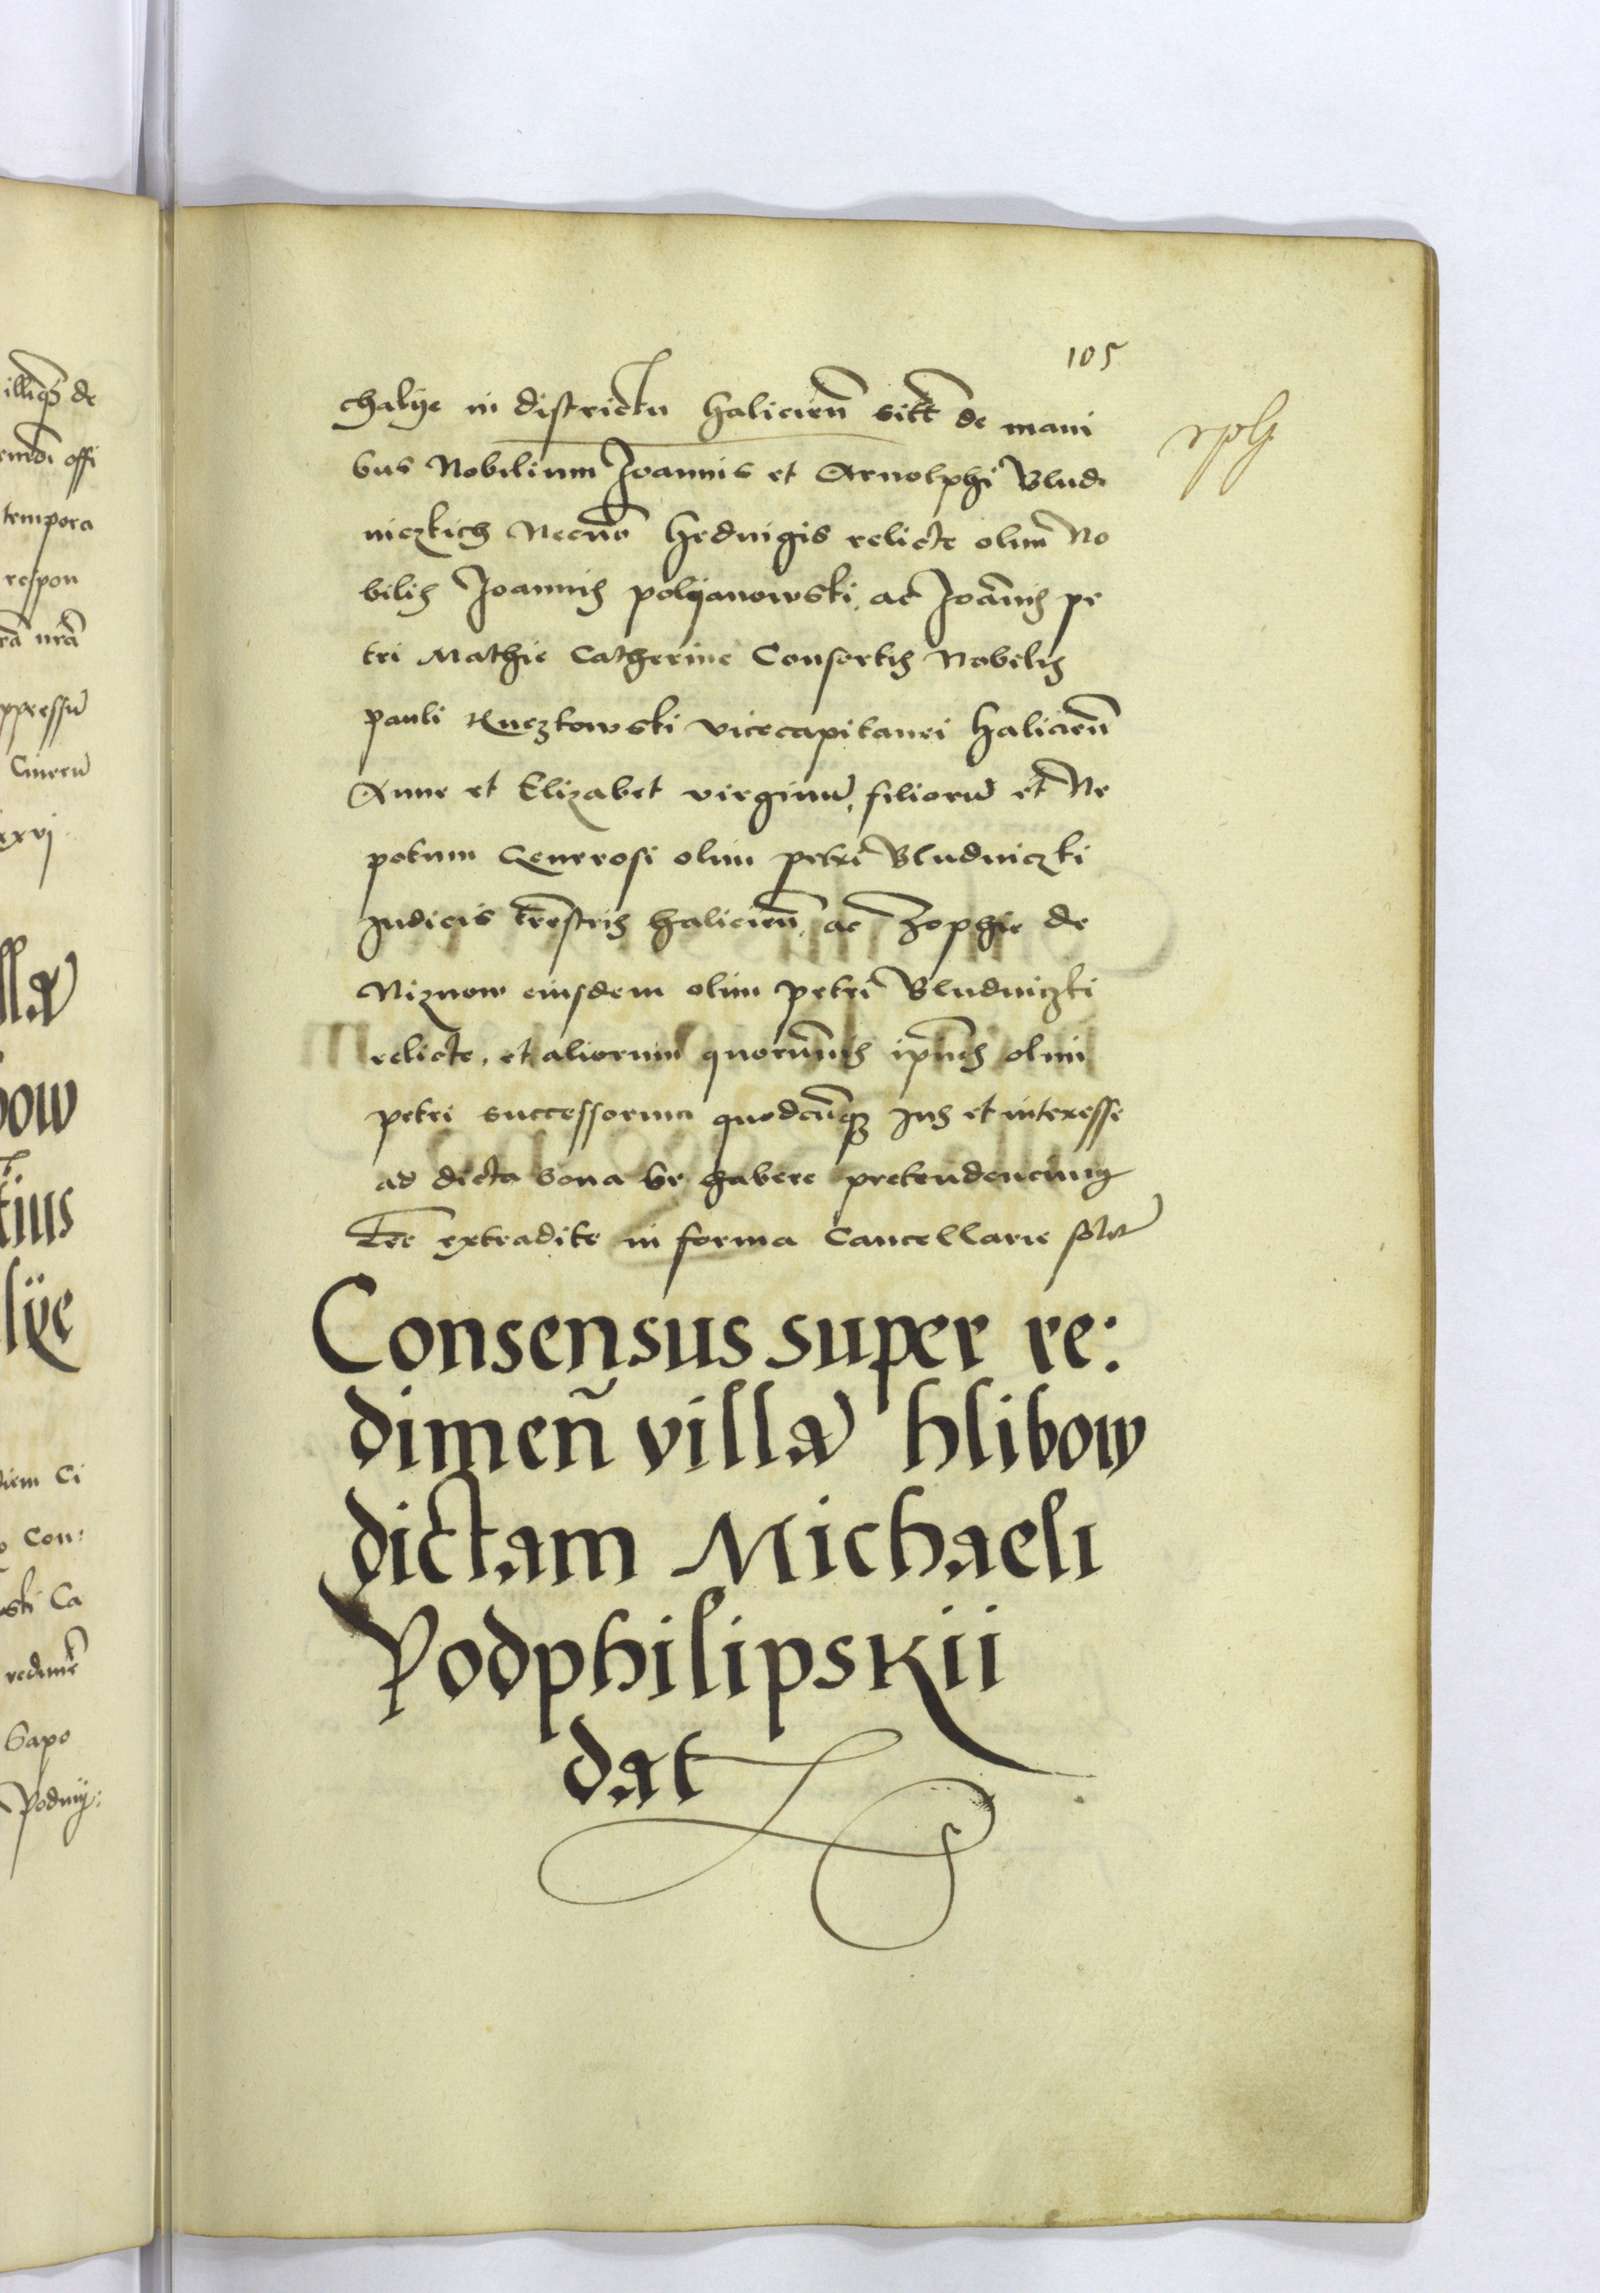 105
chalye in districtu halicien̄ sitt̄ de mani
bus Nobilium Joannis et Arnolphi Blud
niczkich Necnō hedvigis relicte olim̄ No
bilis Joannis polyanowski ac Joān̄is pe
tri Mathie Catherine Consortis Nobilis
pauli Kuczkowski vicecapitanei halicien̄
Anne et Elizabet virginū, filiorū et Ne
potum Generosi olim petri Bludniczki
Judicis trēstris halicien̄ ac Zophie de
Niznow eiusdem olim petri Bludniczki
relicte, et aliorum quorumvis olim
petri successorum quodcūqȝ Jus et interesse
ad dicta bona habere pretendencium
Lrē extradite in forma Cancellarie
Consensus super re:
dimen̄ villā hlibow
dictam Michaeli
Podphilipskii
dat
illiqȝ de
offi
tempora
respon
nrā
Cinerū
xxvj
llā
bow
tius
lÿe
diem Ci
Con:
ski Ca
redimē
Sapo
Podmÿ: